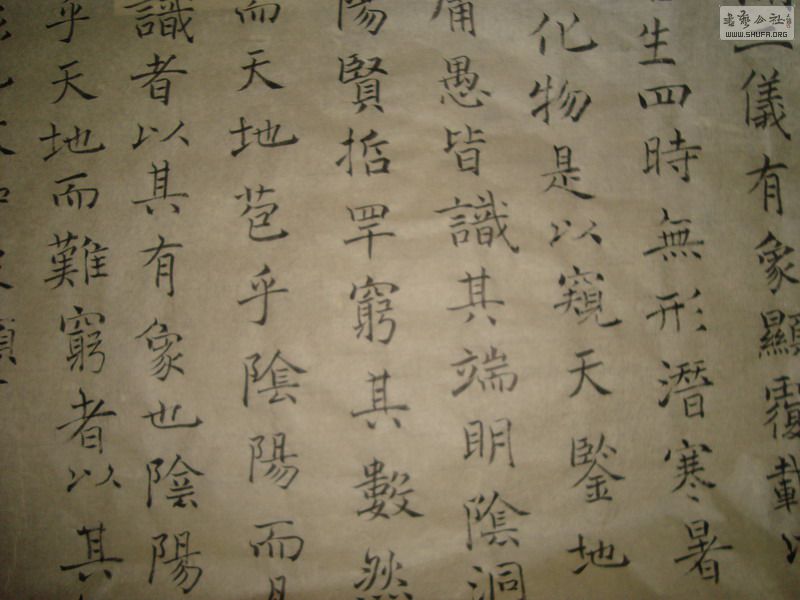 二儀有象顯覆載
生四時無形潛寒暑
化物是以窺天鑒地
庸愚皆識其端明陰洞
陽賢哲罕窮其數然
而天地苞乎陰陽而易
識者以其有象也陰陽
乎天地而難窮者以其
WWW.SHUFA.ORG